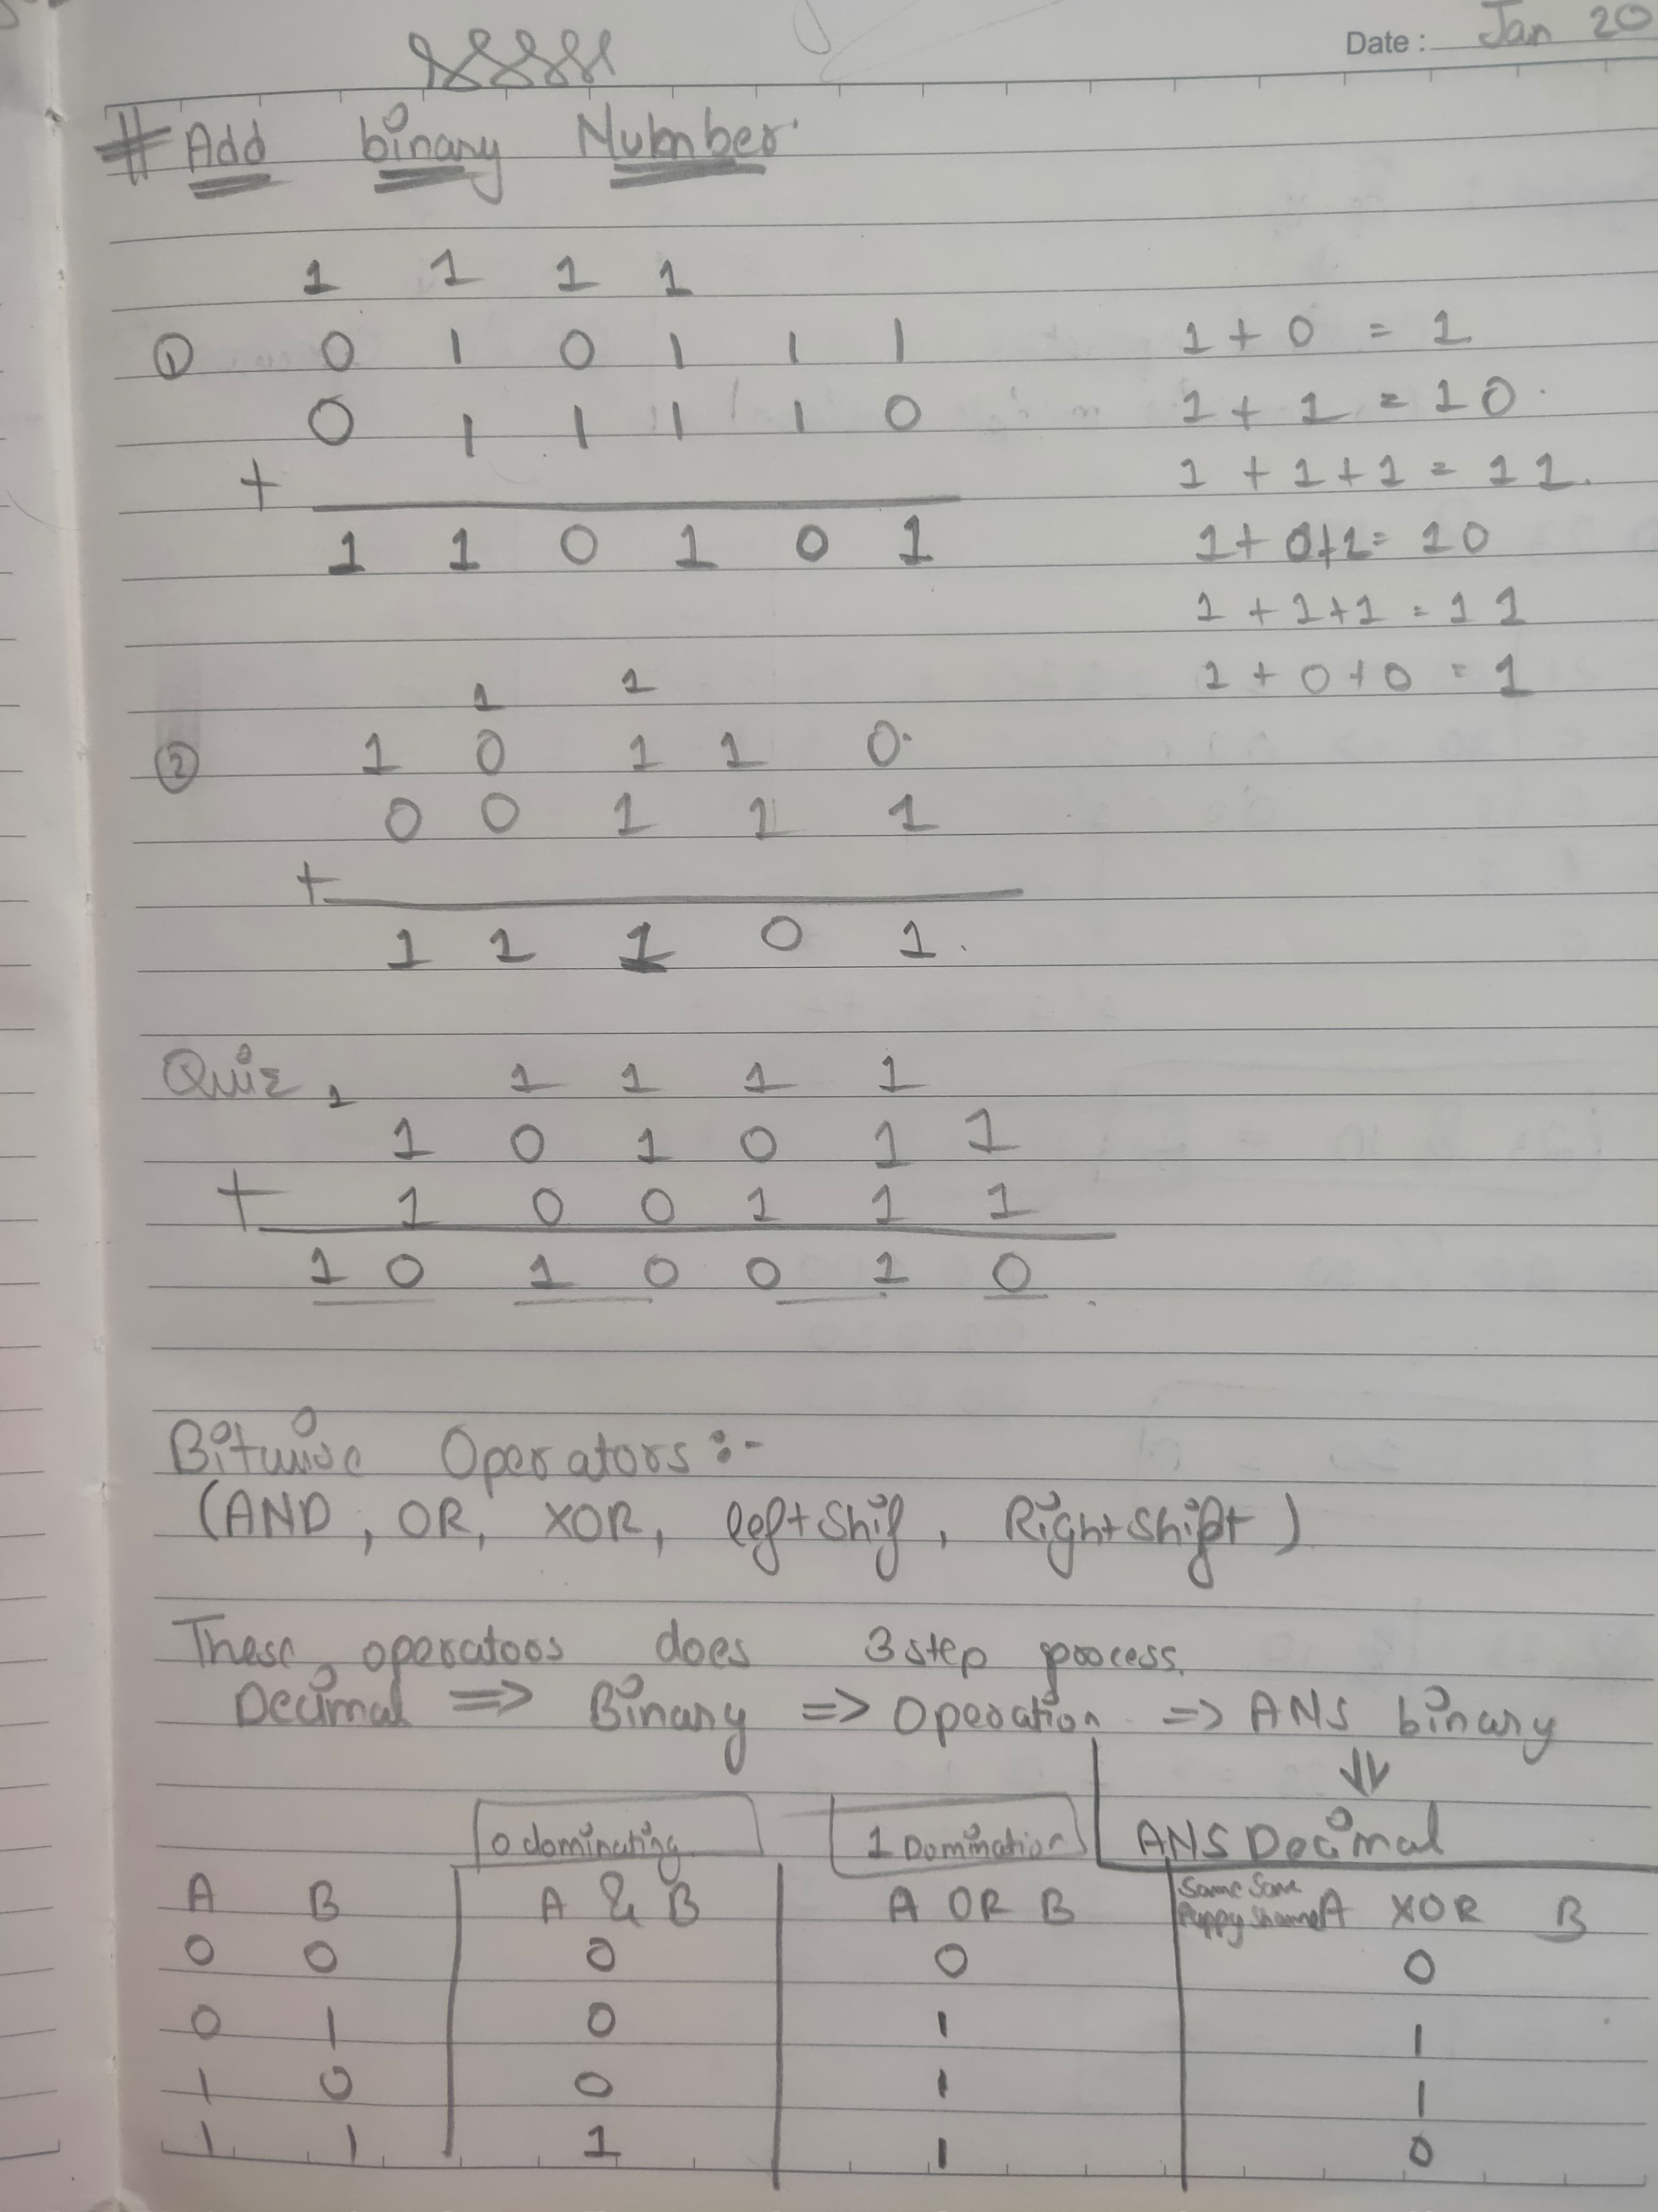 Date : Jan 20
# Add binary Number
1 1 1 1
① 0 1 0 1 1 1
0 1 1 1 1 0
+
1 1 0 1 0 1
1 + 0 = 1
1 + 1 = 10
1 + 1 + 1 = 11
1 + 0 + 1 = 10
1 + 1 + 1 = 11
1 + 0 + 0 = 1
1 1
② 1 0 1 1 0
0 0 1 1 1
+
1 1 1 0 1
Quiz 1 1 1 1 1
1 0 1 0 1 1
+ 1 0 0 1 1 1
1 0 1 0 0 1 0
Bitwise Operators :-
(AND, OR, XOR, left shif, Right shift)
These operators does 3 step process.
Decimal => Binary => Operation => ANS binary
ANS Decimal
0 dominating 1 Domination
A B A & B A OR B Same Same Puppy Shame A XOR B
0 0 0 0 0
0 1 0 1 1
1 0 0 1 1
1 1 1 1 0